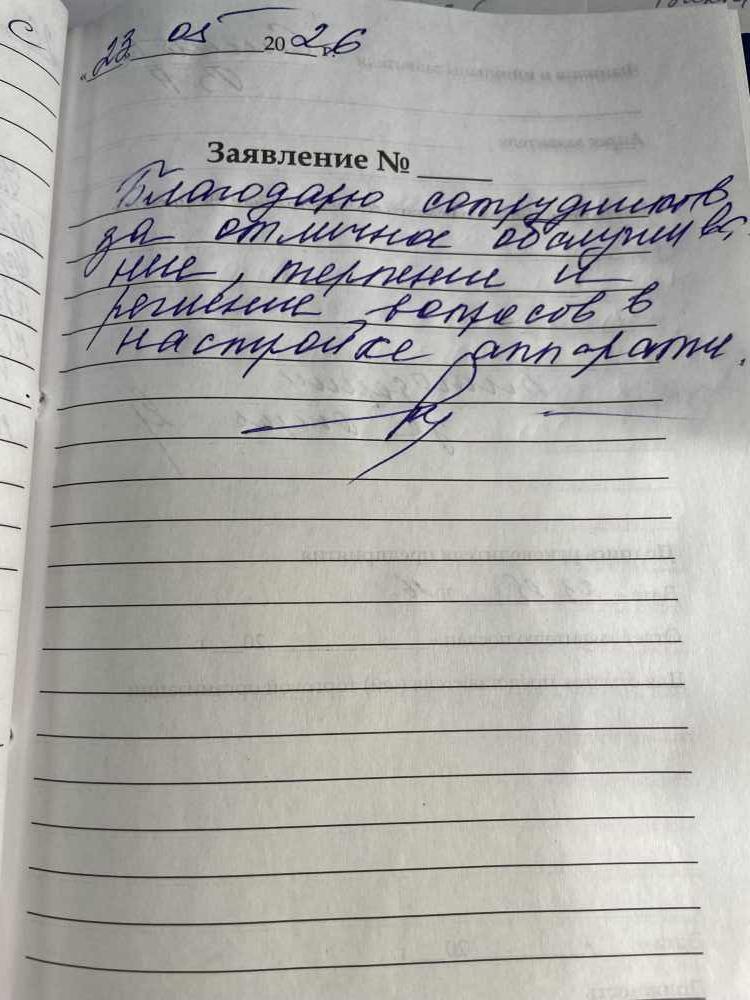 « 23 » 05 2026 г.
Заявление № ____
Благодарю сотрудников
за отличное обслужива-
ние, терпение и
решение вопросов в
настройке аппарата.